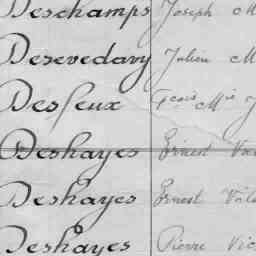 Deschamps Joseph M
Desevedavy Julien M
Desfeux Fcois Mie J
Deshayes Ernest Va
Deshayes Ernest Vale
Deshayes Pierre Vic